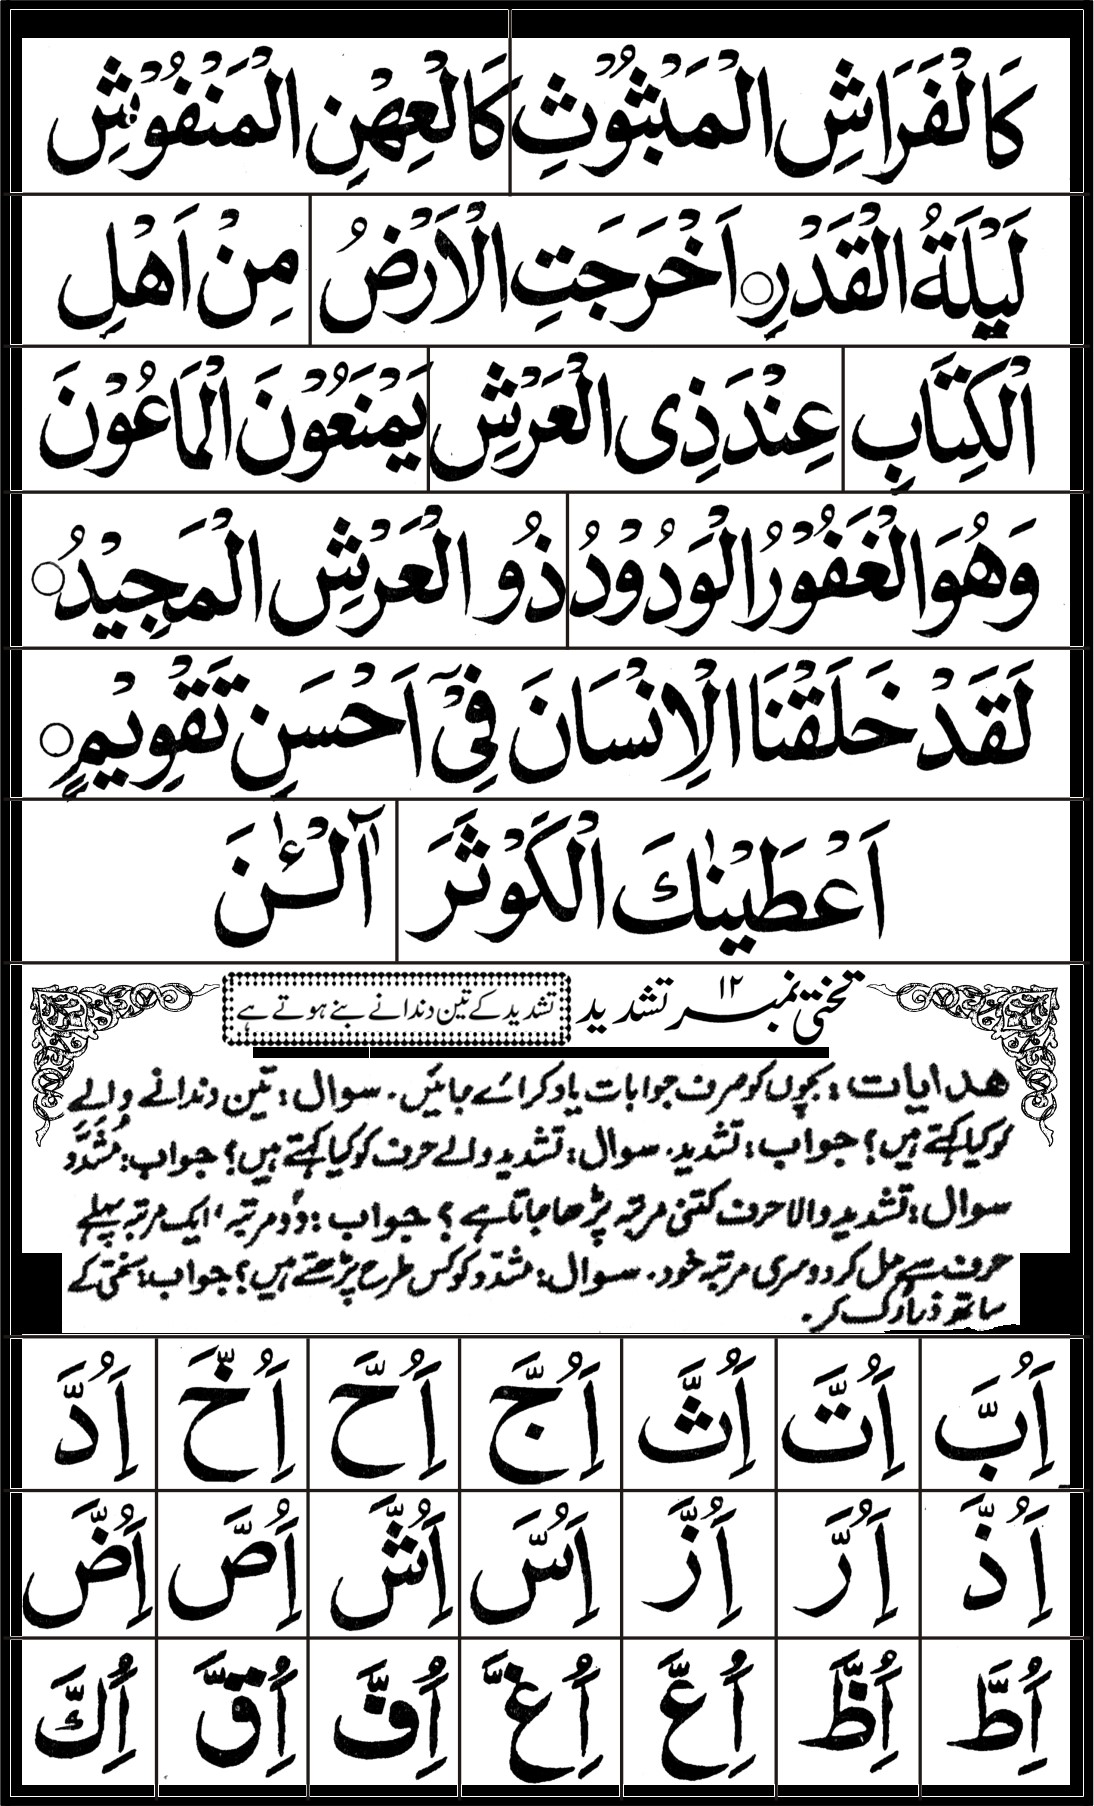 كَالْفَرَاشِ الْمَبْثُوْثِ كَالْعِهْنِ الْمَنْفُوْشِ
لَيْلَةُ الْقَدْرِ ○ اَخْرَجَتِ الْاَرْضُ مِنْ اَهْلِ
الْكِتَابِ عِنْدَ ذِی الْعَرْشِ يَمْنَعُوْنَ الْمَاعُوْنَ
وَهُوَ الْغَفُوْرُ الْوَدُوْدُ ذُو الْعَرْشِ الْمَجِيْدُ ○
لَقَدْ خَلَقْنَا الْاِنْسَانَ فِیْٓ اَحْسَنِ تَقْوِيْمٍ ○
اَعْطَيْنٰكَ الْكَوْثَرَ آلْـٰٔنَ
تختی نمبر ۱۲ تشدید تشدید کے تین دندانے بنے ہوتے ہے
ھدایات : بچوں کو صرف جوابات یاد کرائے جائیں۔ سوال: تین دندانے والے
کو کیا کہتے ہیں؟ جواب: تشدید۔ سوال: تشدید والے حرف کو کیا کہتے ہیں؟ جواب: مُشَدَّد
سوال: تشدید والا حرف کتنی مرتبہ پڑھا جاتا ہے؟ جواب: دو مرتبہ، ایک مرتبہ پہلے
حرف سے مل کر دوسری مرتبہ خود۔ سوال: مشدد کو کس طرح پڑھتے ہیں؟ جواب: سختی کے
ساتھ ذرا رک کر۔
اَِبَُّ اَِتَُّ اَِثَُّ اَِجَُّ اَِحَُّ اَِخَُّ اَِدَُّ
اَِذَُّ اَِرَُّ اَِزَُّ اَِسَُّ اَِشَُّ اَِصَُّ اَِضَُّ
اَِطَُّ اَِظَُّ اَِعَُّ اَِغَُّ اَِفَُّ اَِقَُّ اَِكَُّ